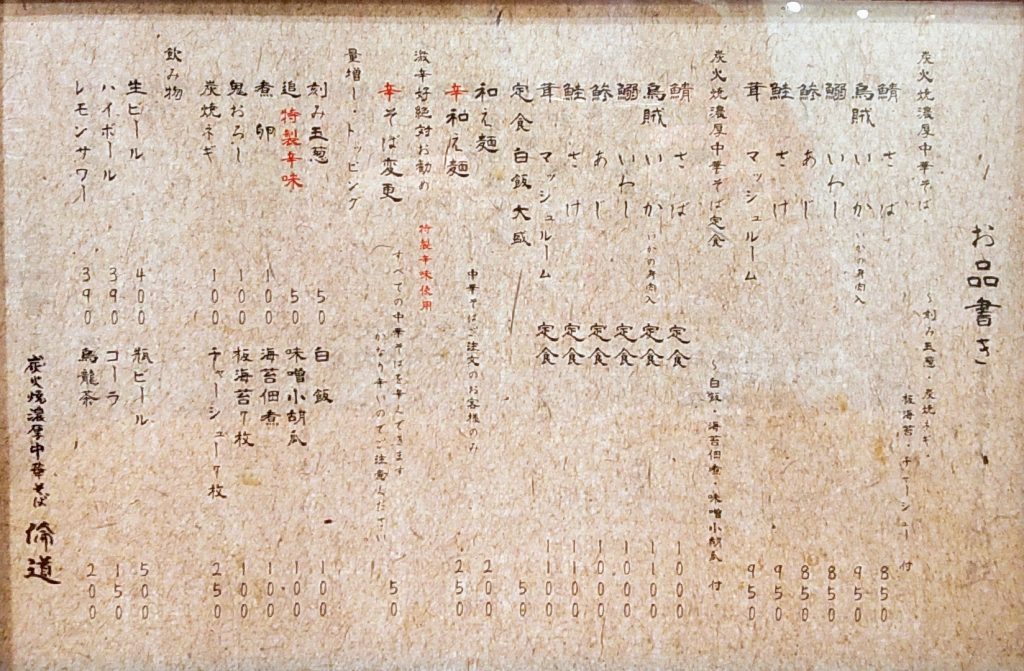 お品書き
炭火焼濃厚中華そば 〜刻み玉葱・炭焼ネギ・
板海苔・チャーシュー 付
鯖 さば 850
烏賊 いか いかの身肉入 950
鰯 いわし 850
鯵 あじ 850
鮭 さけ 950
茸 マッシュルーム 950
炭火焼濃厚中華そば定食 〜白飯・海苔佃煮・味噌小胡瓜 付
鯖 さば 定食 1000
烏賊 いか いかの身肉入 定食 1100
鰯 いわし 定食 1000
鯵 あじ 定食 1000
鮭 さけ 定食 1100
茸 マッシュルーム 定食 1100
定食 白飯大盛 50
和え麺 200
中華そばご注文のお客様のみ
辛和え麺 250
激辛好絶対お勧め 特製辛味使用
すべての中華そばを辛くできます
辛そば変更 50
かなり辛いのでご注意ください
量増し・トッピング
刻み玉葱 50 白飯 100
追特製辛味 50 味噌小胡瓜 100
煮卵 100 海苔佃煮 100
鬼おろし 100 板海苔7枚 100
炭焼ネギ 100 チャーシュー7枚 250
飲み物
生ビール 400 瓶ビール 500
ハイボール 390 コーラ 150
レモンサワー 390 烏龍茶 200
炭火焼濃厚中華そば 倫道